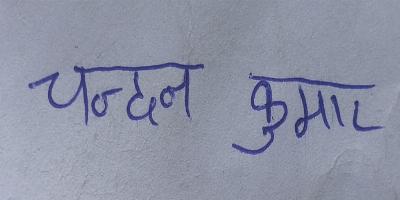 चन्दन कुमार